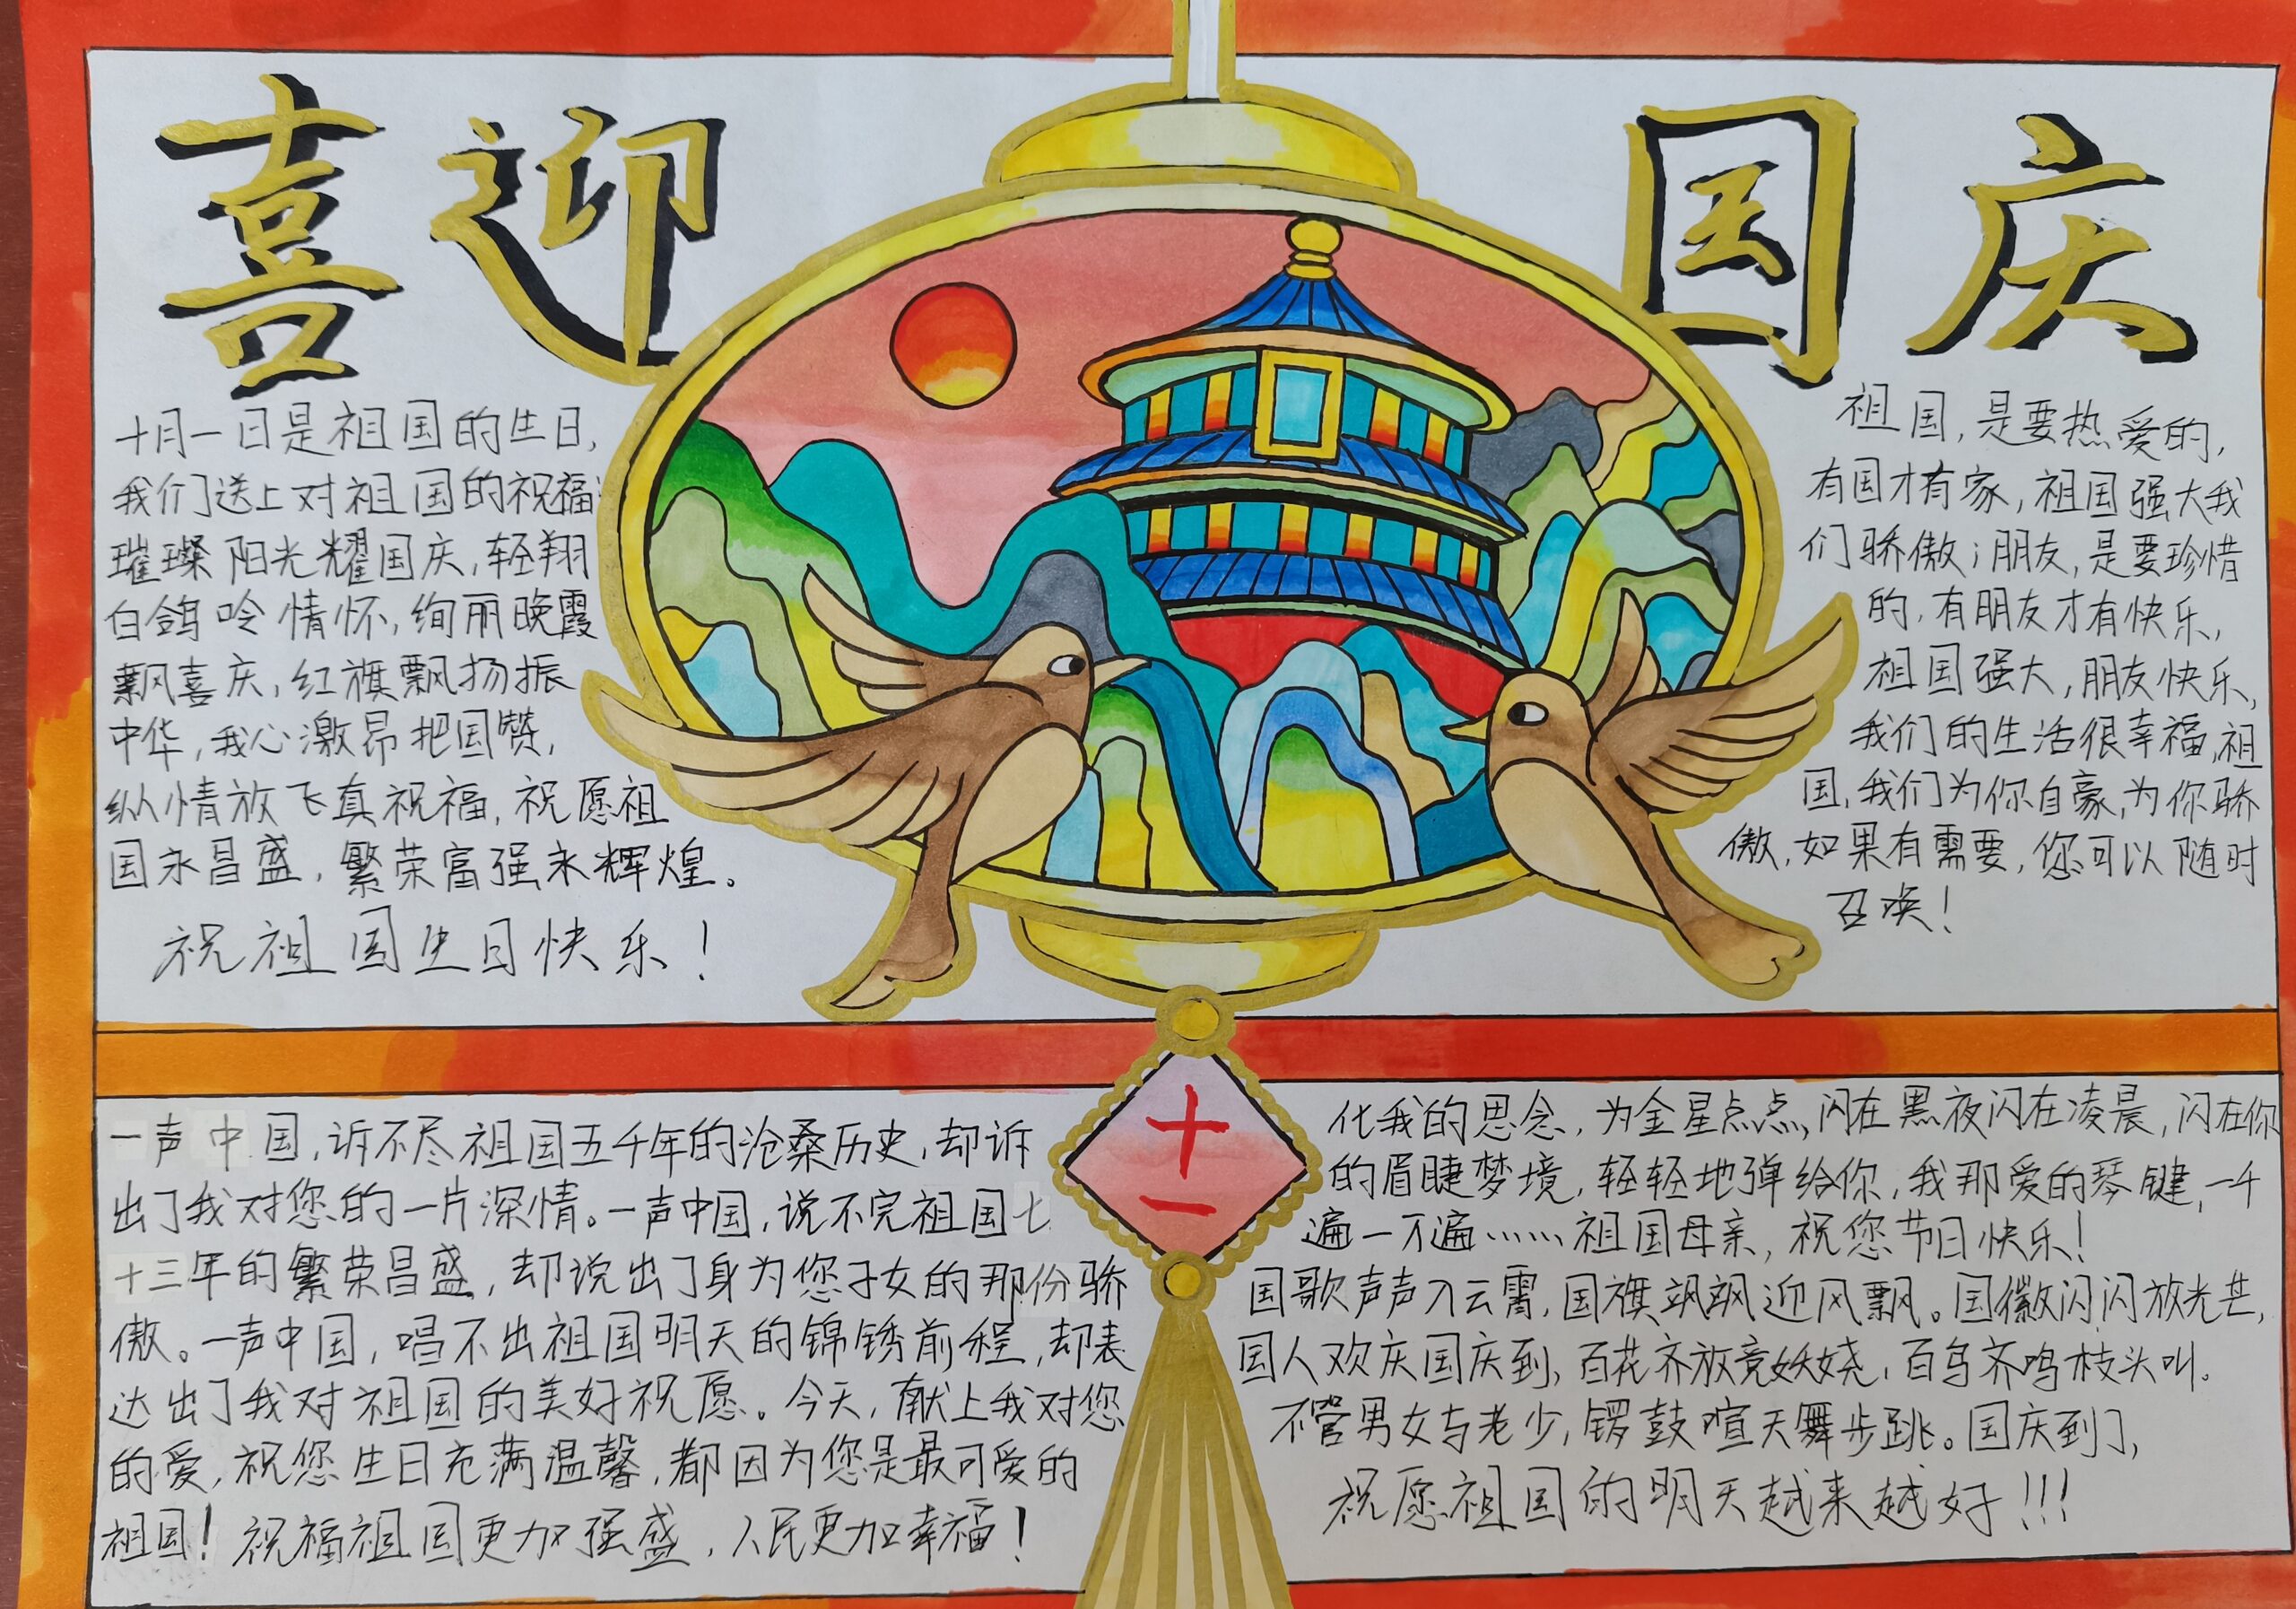 喜迎国庆
十月一日是祖国的生日,
我们送上对祖国的祝福:
璀璨阳光耀国庆,轻翔
白鸽吟情怀,绚丽晚霞
飘喜庆,红旗飘扬振
中华,我心激昂把国赞,
纵情放飞真祝福,祝愿祖
国永昌盛,繁荣富强永辉煌。
祝祖国生日快乐!
祖国,是要热爱的,
有国才有家,祖国强大我
们骄傲;朋友,是要珍惜
的,有朋友才有快乐,
祖国强大,朋友快乐,
我们的生活很幸福,祖
国,我们为你自豪,为你骄
傲,如果有需要,您可以随时
召唤!
十一
一声中国,诉不尽祖国五千年的沧桑历史,却诉
出了我对您的一片深情。一声中国,说不完祖国七
十三年的繁荣昌盛,却说出了身为您子女的那份骄
傲。一声中国,唱不出祖国明天的锦锈前程,却表
达出了我对祖国的美好祝愿。今天,献上我对您
的爱,祝您生日充满温馨,都因为您是最可爱的
祖国!祝福祖国更加强盛,人民更加幸福!
化我的思念,为金星点点,闪在黑夜闪在凌晨,闪在你
的眉睫梦境,轻轻地弹给你,我那爱的琴键,一千
遍一万遍……祖国母亲,祝您节日快乐!
国歌声声入云霄,国旗飒飒迎风飘。国徽闪闪放光芒,
国人欢庆国庆到,百花齐放竞妖娆,百鸟齐鸣枝头叫。
不管男女与老少,锣鼓喧天舞步跳。国庆到了,
祝愿祖国的明天越来越好!!!